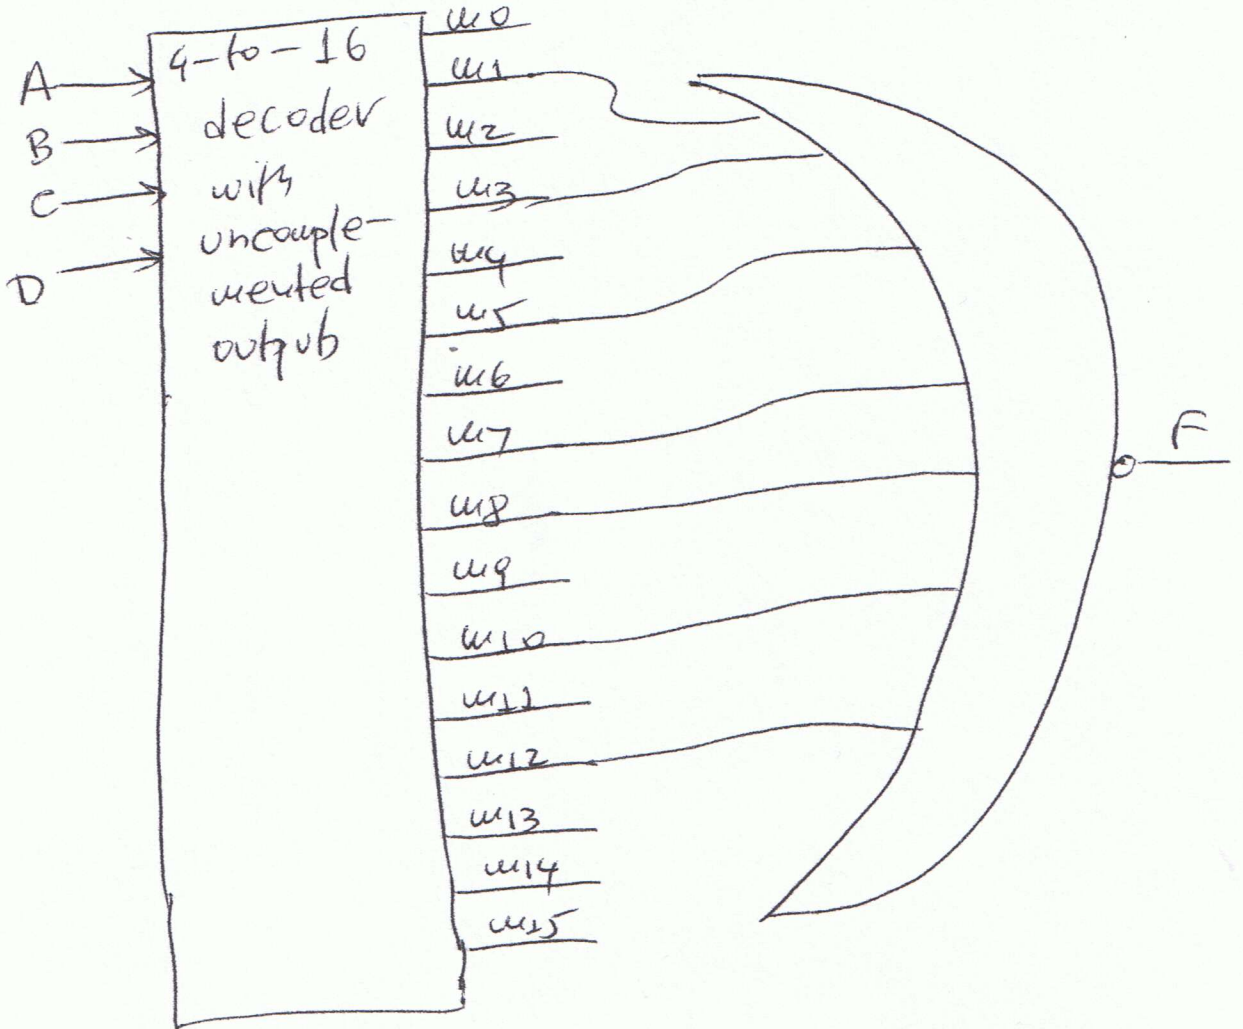 4-to-16
decoder
with
uncomple-
mented
output
A
B
C
D
m0
m1
m2
m3
m4
m5
m6
m7
m8
m9
m10
m11
m12
m13
m14
m15
F